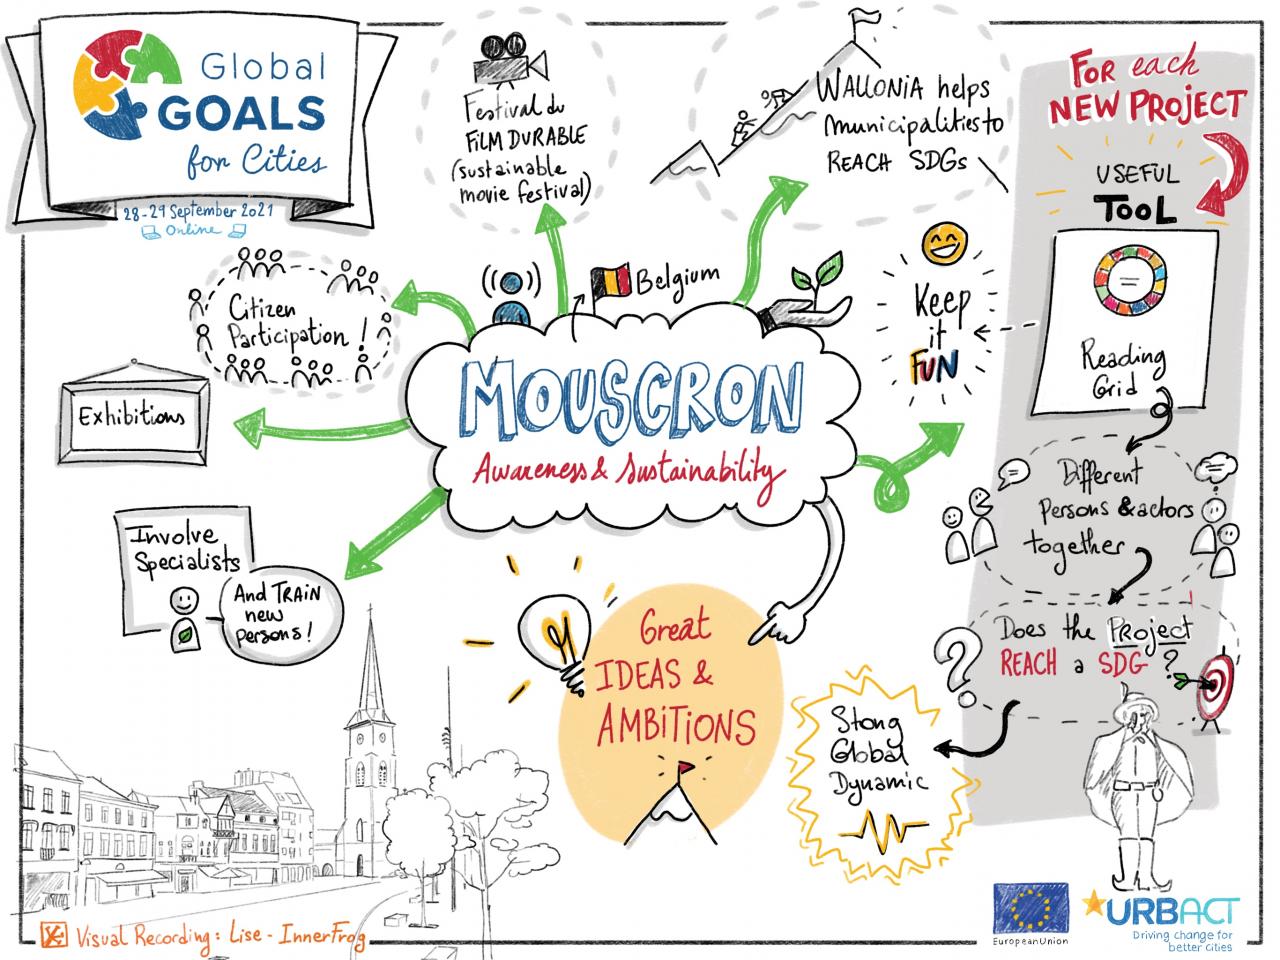 Global
GOALS
for Cities
28-29 September 2021
Online
Festival du
FiLM DURABLE
(sustainable
movie festival)
WALLONIA helps
municipalities to
REACH SDGs
FOR each
NEW PROJECT
USEFUL
TOOL
Reading
Grid
Keep
it
FUN
Belgium
Citizen
Participation!
Exhibitions
MOUSCRON
Awareness & Sustainability
Involve
Specialists
And TRAIN
new
persons!
Different
persons & actors
together
Does the Project
REACH a SDG ?
Great
IDEAS &
AMBITIONS
Stong
Global
Dynamic
Visual Recording: Lise - InnerFrog
European Union
URBACT
Driving change for
better cities